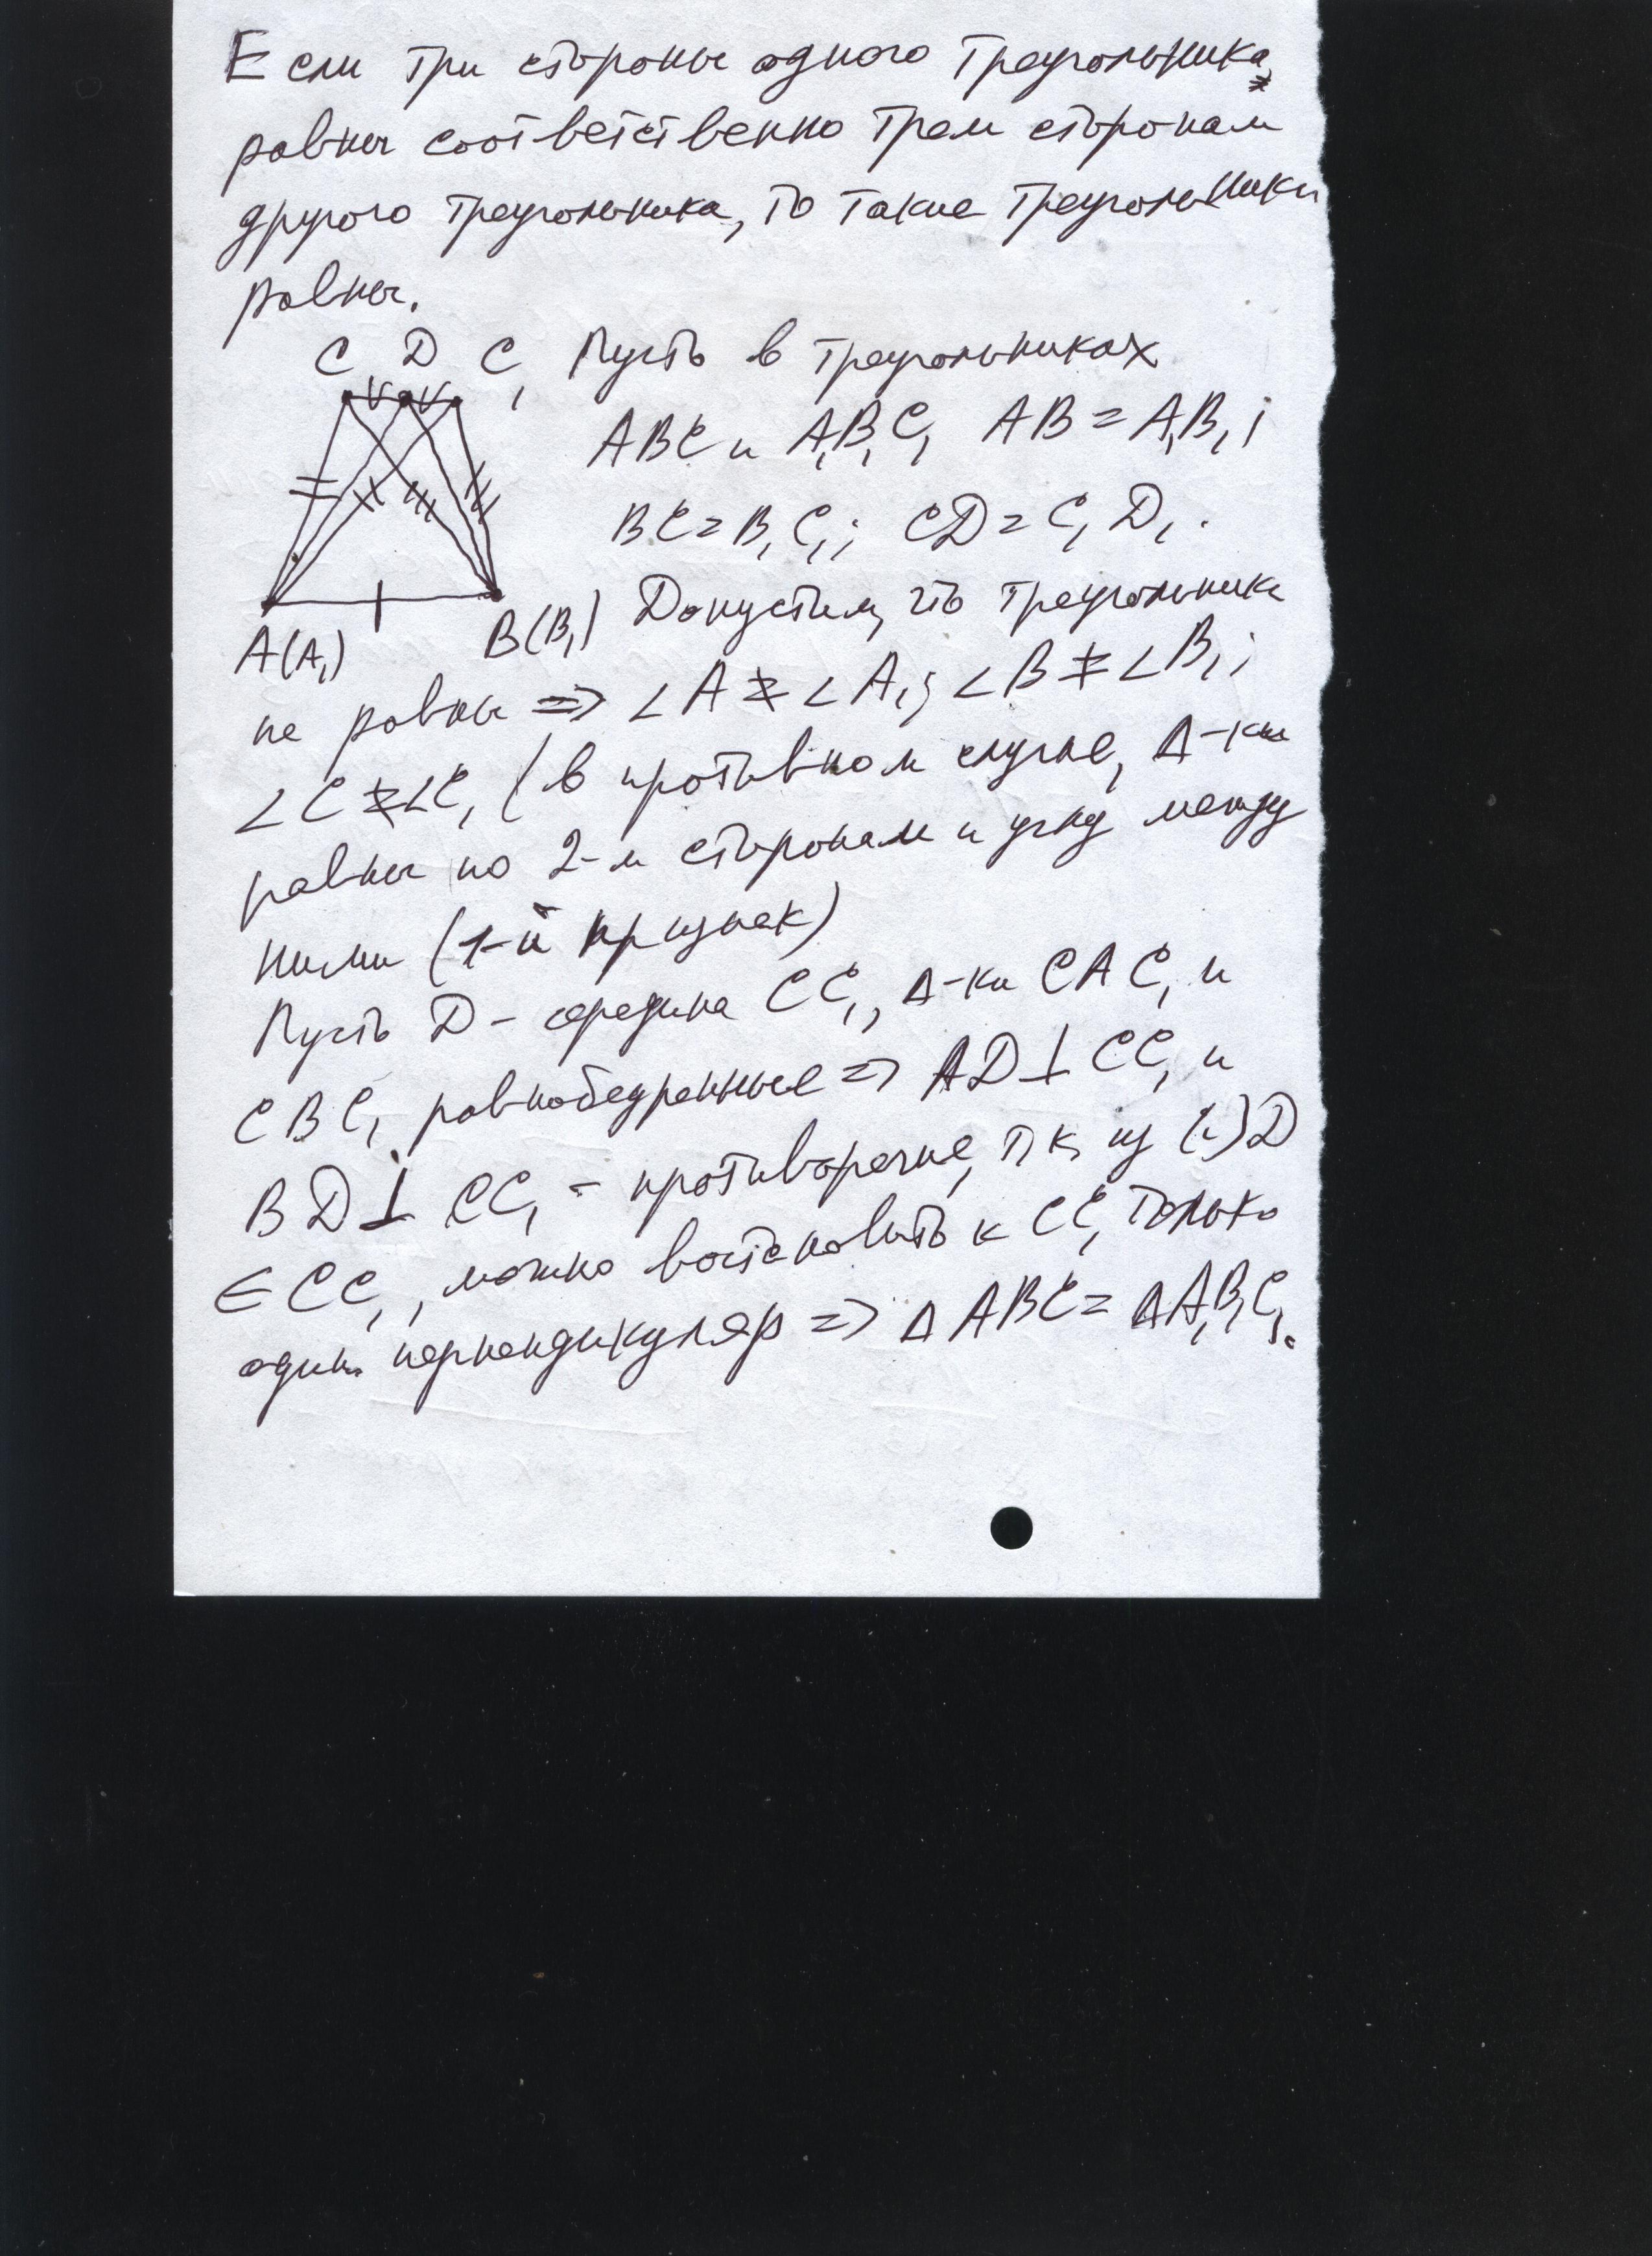 Если три стороны одного треугольника
равны соответственно трем сторонам
другого треугольника, то такие треугольники
равны.
C D C₁ Пусть в треугольниках
ABC и A₁B₁C₁ AB = A₁B₁;
BC = B₁C₁; CD = C₁D₁.
A(A₁) B(B₁) Допустим, что треугольники
не равны => ∠A ≠ ∠A₁; ∠B ≠ ∠B₁;
∠C ≠ ∠C₁ (в противном случае, Δ-ки
равны по 2-м сторонам и углу между
ними (1-й признак)
Пусть D - середина CC₁, Δ-ки CAC₁ и
CBC₁ равнобедренные => AD ⊥ CC₁ и
BD ⊥ CC₁ - противоречие, т.к. из (.) D
∈ CC₁, можно востановить к CC₁ только
один перпендикуляр => Δ ABC = Δ A₁B₁C₁.